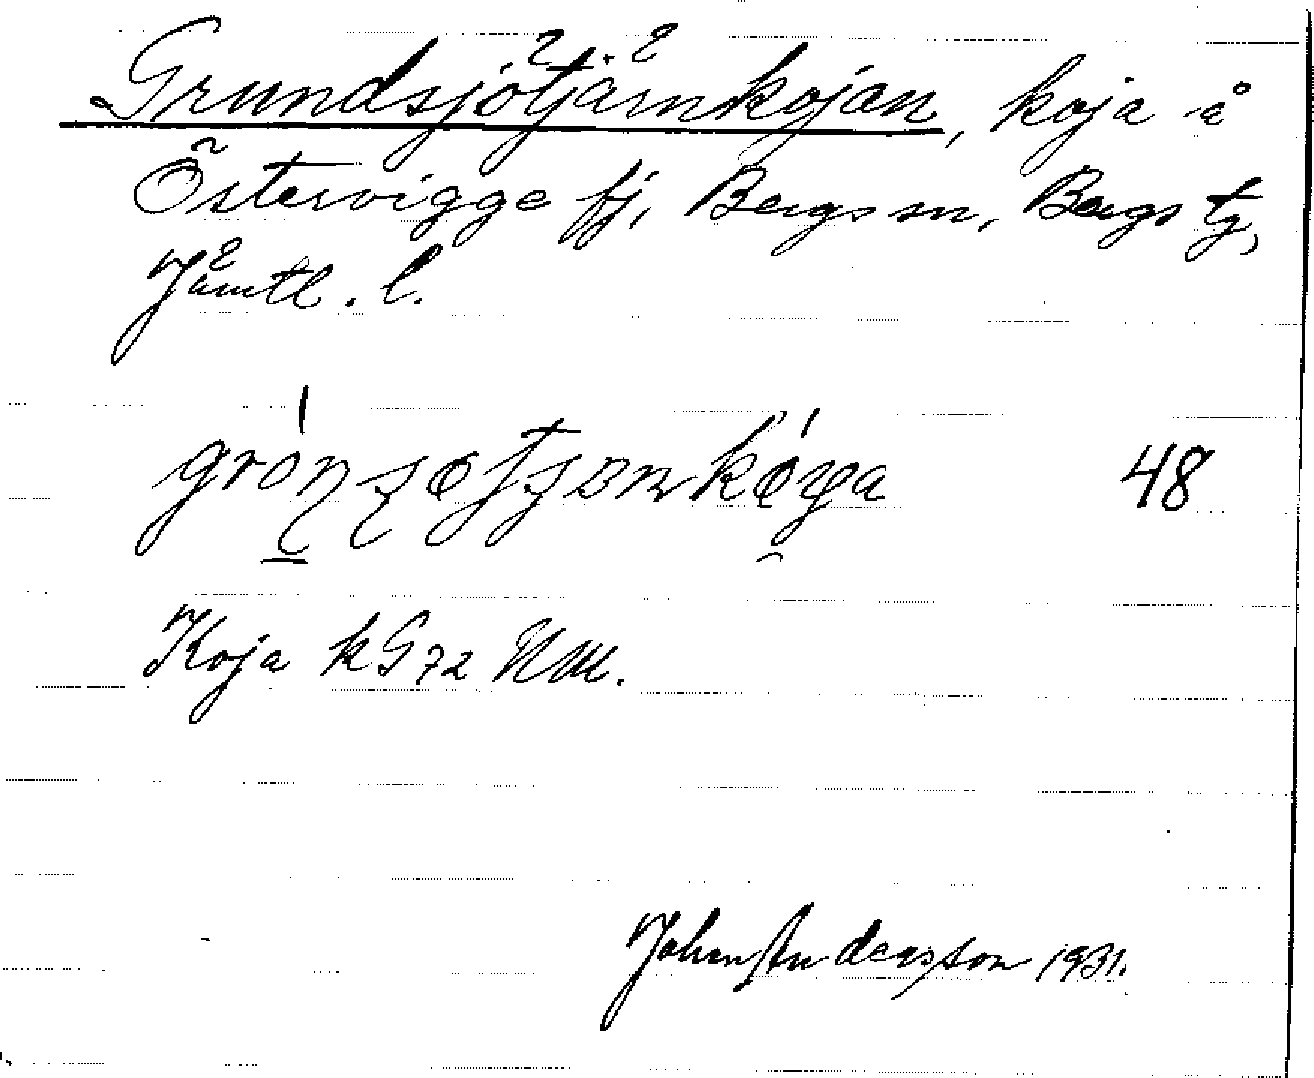 Grundsjötjärnkojan, koja å
Östervigge fj, Bergs sn, Bergs tg,
Jämtl. l.
48
Koja kG72 NM.
Johan Andersson 1931.